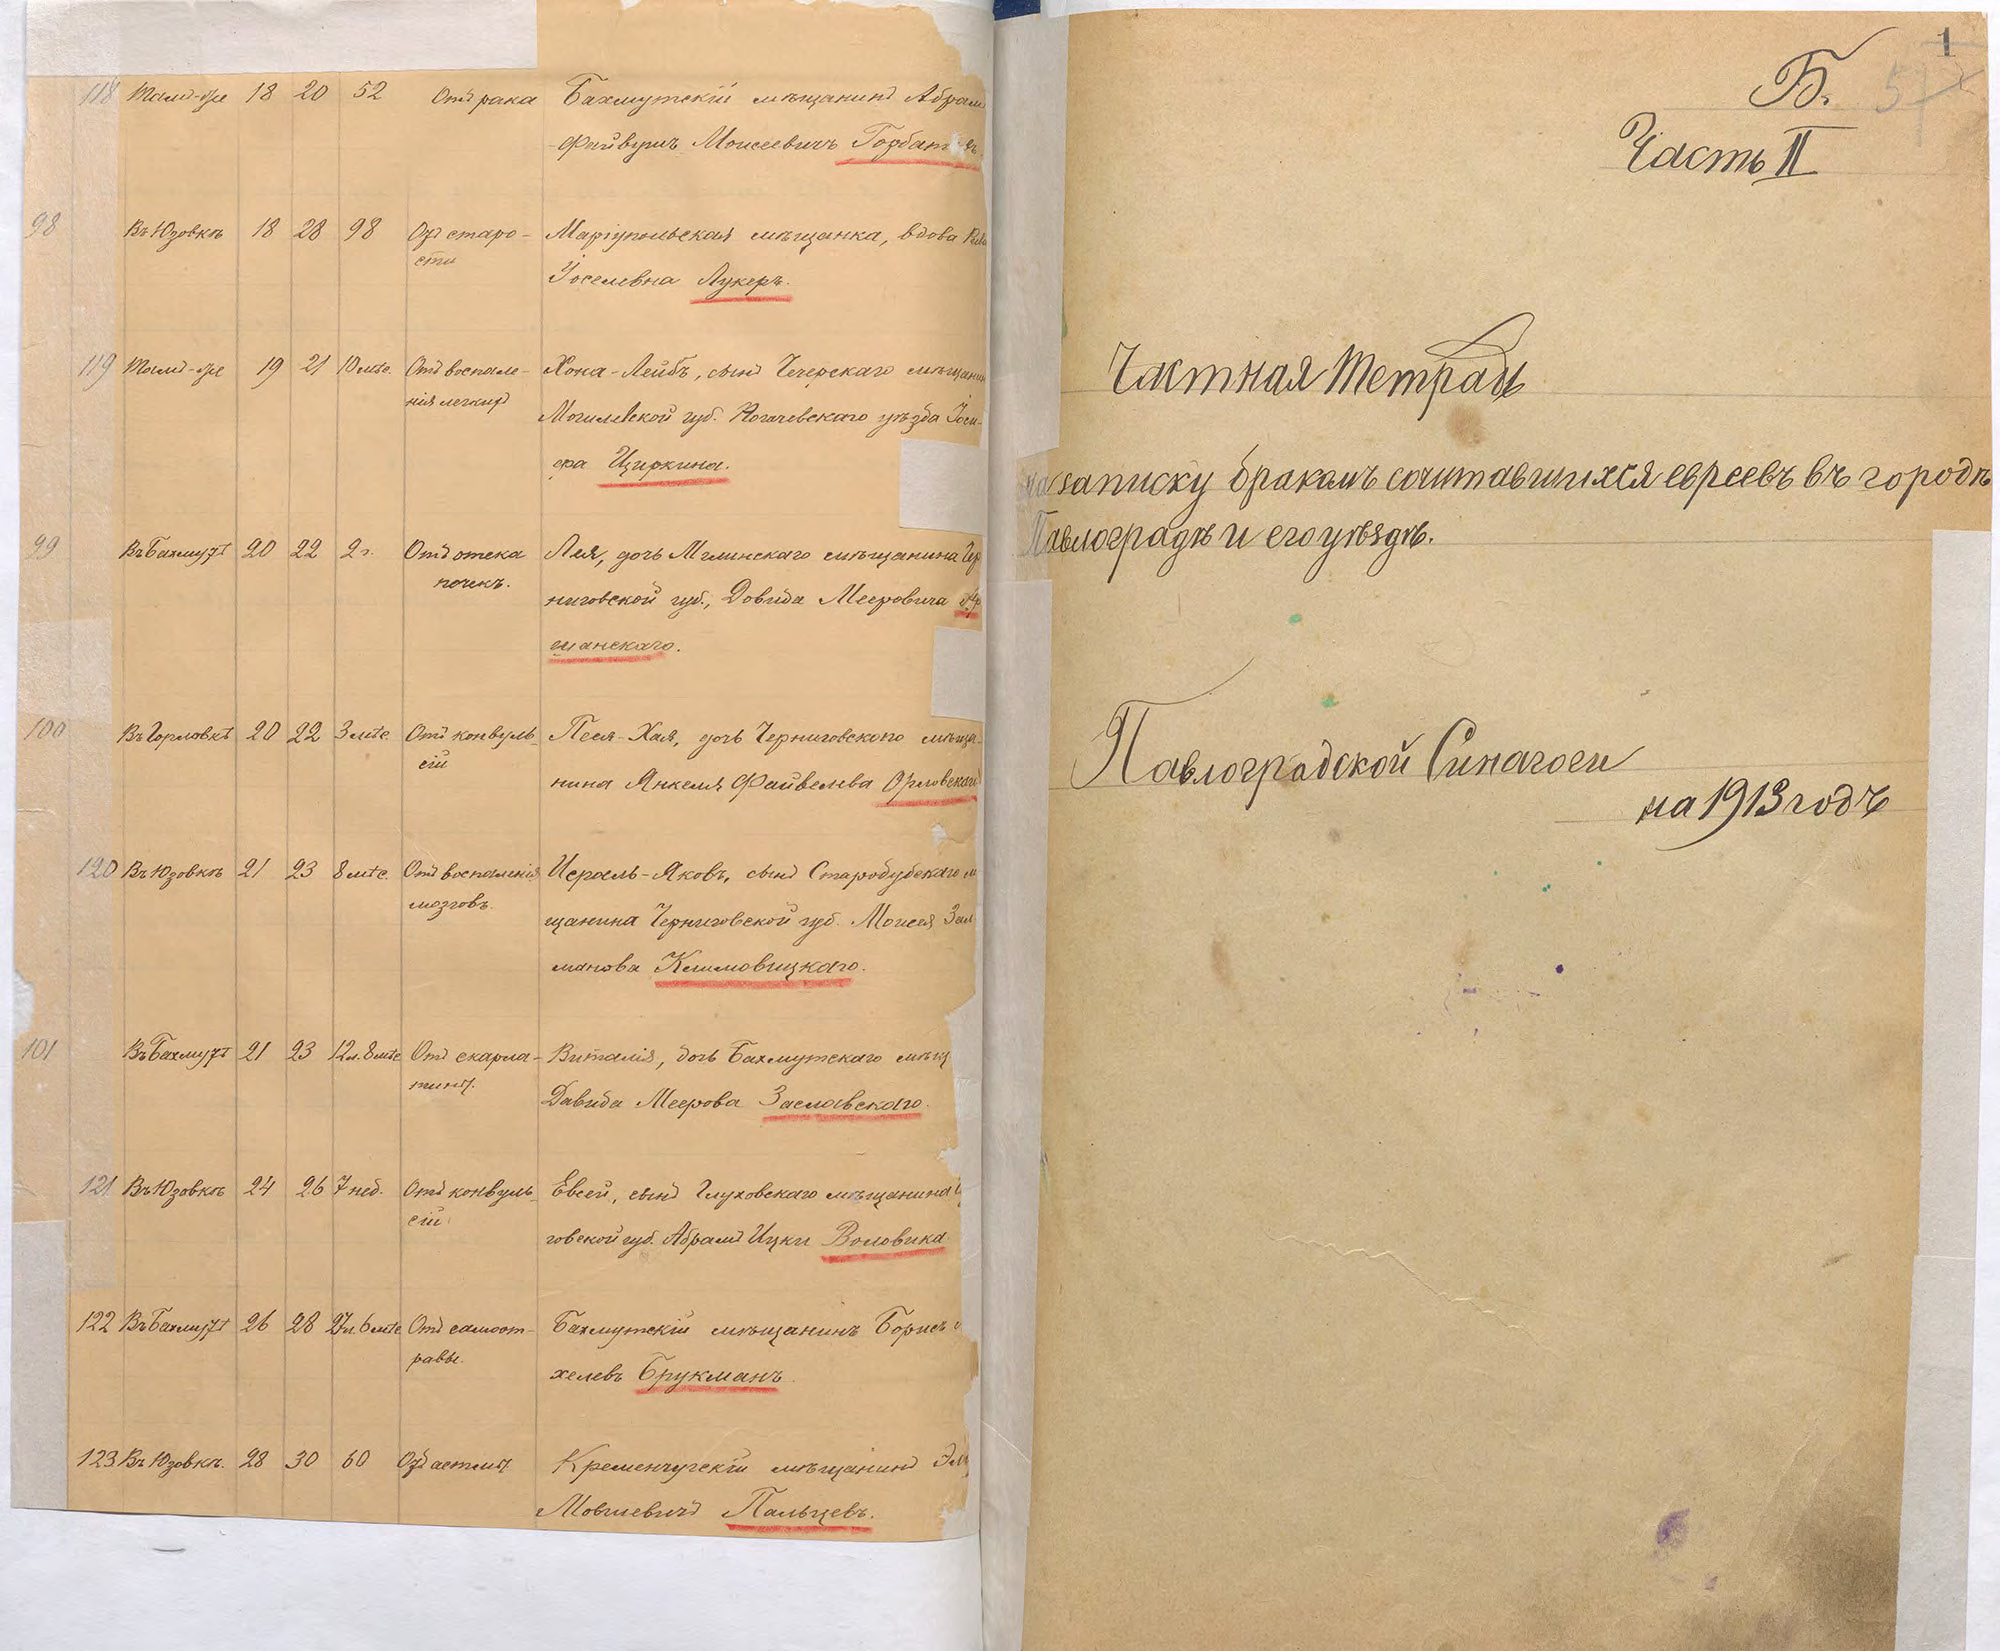 118 Тамъ-же 18 20 52 Отъ рака Бахмутскій мѣщанинъ Абрам
Файвушъ Моисеевичъ
98 Въ Юзовкѣ 18 28 98 Отъ старо- Маріупольская мѣщанка, вдова
сти Іоселевна Лукеръ.
119 Тамъ-же 19 21 10 мѣс. Отъ воспале- Хона-Лейбъ, сынъ Чечерскаго мѣщанин
нія легкихъ Могилевской губ. Рогачевскаго уѣзда Іоси-
фа Циркина.
99 Въ Бахмутѣ 20 22 2 г. Отъ отека Лея, дочь Мглинскаго мѣщанина Чер
почекъ. ниговской губ., Довида Мееровича
шанскаго.
100 Въ Горловкѣ 20 22 3 мѣс. Отъ конвуль- Песя-Хая, дочь Черниговскаго мѣща-
сій нина Янкеля Файвелева Орловскаго
120 Въ Юзовкѣ 21 23 8 мѣс. Отъ воспаленія Исроель-Яковъ, сынъ Стародубскаго м
мозговъ. щанина Черниговской губ. Моисея Зал
манова Климовицкаго.
101 Въ Бахмутѣ 21 23 12 л. 8 мѣс Отъ скарла- Виталія, дочь Бахмутскаго мѣщ
тины. Давида Меерова Заславскаго.
121 Въ Юзовкѣ 24 26 7 нед. Отъ конвуль- Евсей, сынъ Глуховскаго мѣщанина
сій говской губ. Абрамъ Ицки Воловика
122 Въ Бахмутѣ 26 28 27 л. 6 мѣс Отъ самоот- Бахмутскій мѣщанинъ Борисъ
равы. хелевъ Брукманъ.
123 Въ Юзовкѣ. 28 30 60 Отъ астмы Кременчугскій мѣщанинъ
Мовшевичъ Пальцевъ.
1
Б.
Часть II
Частная тетрадь
на записку бракомъ сочитавшихся евреевъ въ городѣ
Павлоградѣ и его уѣздѣ.
Павлоградской Синагоги
на 1913 годъ